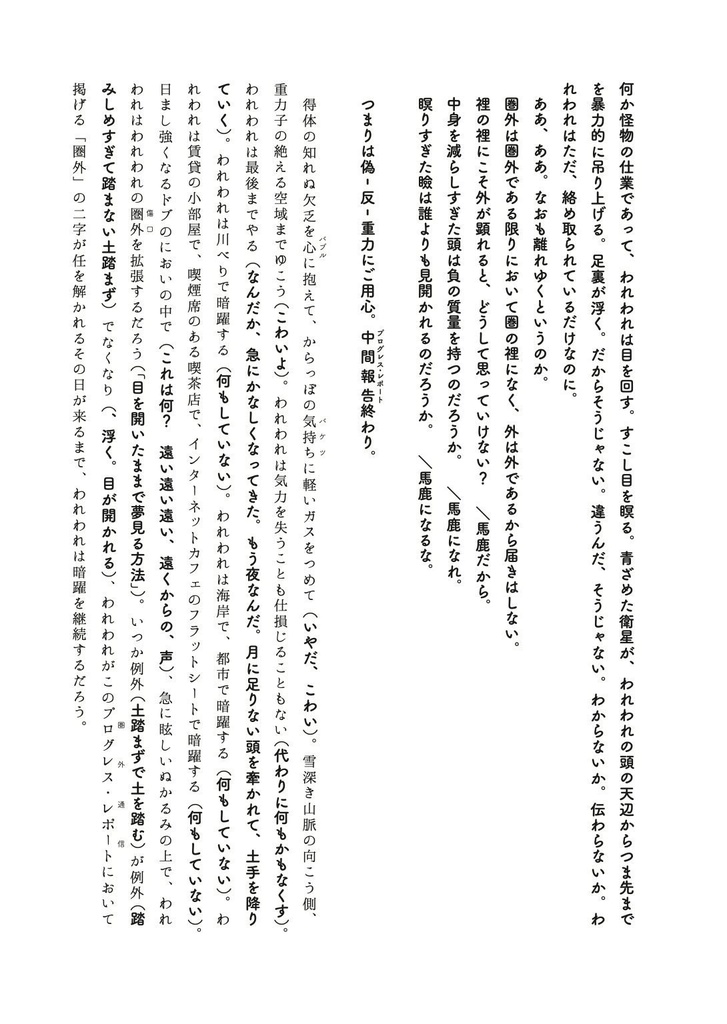 何か怪物の仕業であって、われわれは目を回す。すこし目を瞑る。青ざめた衛星が、われわれの頭の天辺からつま先まで
を暴力的に吊り上げる。足裏が浮く。だからそうじゃない。違うんだ、そうじゃない。わからないか。伝わらないか。わ
れわれはただ、絡め取られているだけなのに。
ああ、ああ。なおも離れゆくというのか。
圏外は圏外である限りにおいて圏の裡になく、外は外であるから届きはしない。
裡の裡にこそ外が顕れると、どうして思っていけない？ ＼馬鹿だから。
中身を減らしすぎた頭は負の質量を持つのだろうか。 ＼馬鹿になれ。
瞑りすぎた瞼は誰よりも見開かれるのだろうか。 ＼馬鹿になるな。
つまりは偽-反-重力にご用心。中間報告終わり。
プログレス・レポート
得体の知れぬ欠乏を心に抱えて、からっぽの気持ちに軽いガスをつめて（いやだ、こわい）。雪深き山脈の向こう側、
バブル
バケツ
重力子の絶える空域までゆこう（こわいよ）。われわれは気力を失うことも仕損じることもない（代わりに何もかもなくす）。
われわれは最後までやる（なんだか、急にかなしくなってきた。もう夜なんだ。月に足りない頭を牽かれて、土手を降り
ていく）。われわれは川べりで暗躍する（何もしていない）。われわれは海岸で、都市で暗躍する（何もしていない）。わ
れわれは賃貸の小部屋で、喫煙席のある喫茶店で、インターネットカフェのフラットシートで暗躍する（何もしていない）。
日まし強くなるドブのにおいの中で（これは何？ 遠い遠い遠い、遠くからの、声）、急に眩しいぬかるみの上で、われ
われはわれわれの圏外を拡張するだろう（「目を開いたままで夢見る方法」）。いつか例外（土踏まずで土を踏む）が例外（踏
傷口
みしめすぎて踏まない土踏まず）でなくなり（、浮く。目が開かれる）、われわれがこのプログレス・レポートにおいて
圏外通信
掲げる「圏外」の二字が任を解かれるその日が来るまで、われわれは暗躍を継続するだろう。